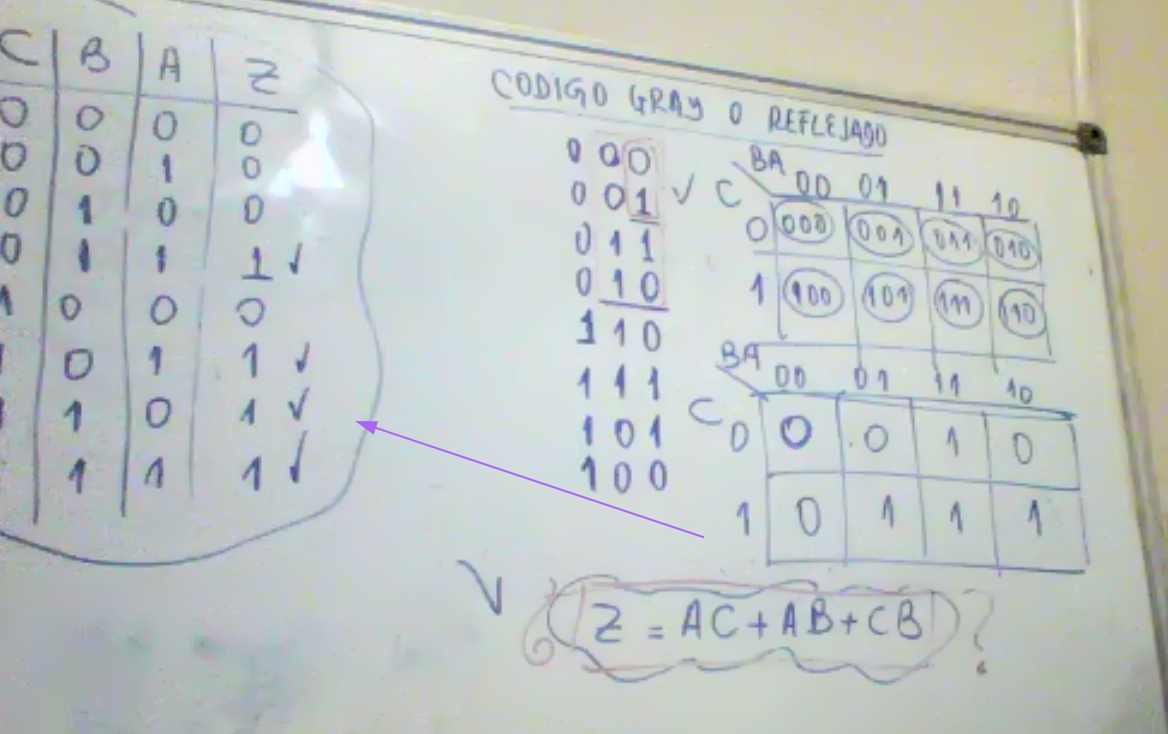 C B A Z
0 0 0 0
0 0 1 0
0 1 0 0
0 1 1 1 ✓
1 0 0 0
1 0 1 1 ✓
1 1 0 1 ✓
1 1 1 ✓
CODIGO GRAY O REFLEJADO
000
001 ✓
011
010
110
111
101
100
BA
C 00 01 11 10
0 000 001 011 010
1 100 101 111 110
BA
C 00 01 11 10
0 0 0 1 0
1 0 1 1 1
V
Z = AC + AB + CB ?